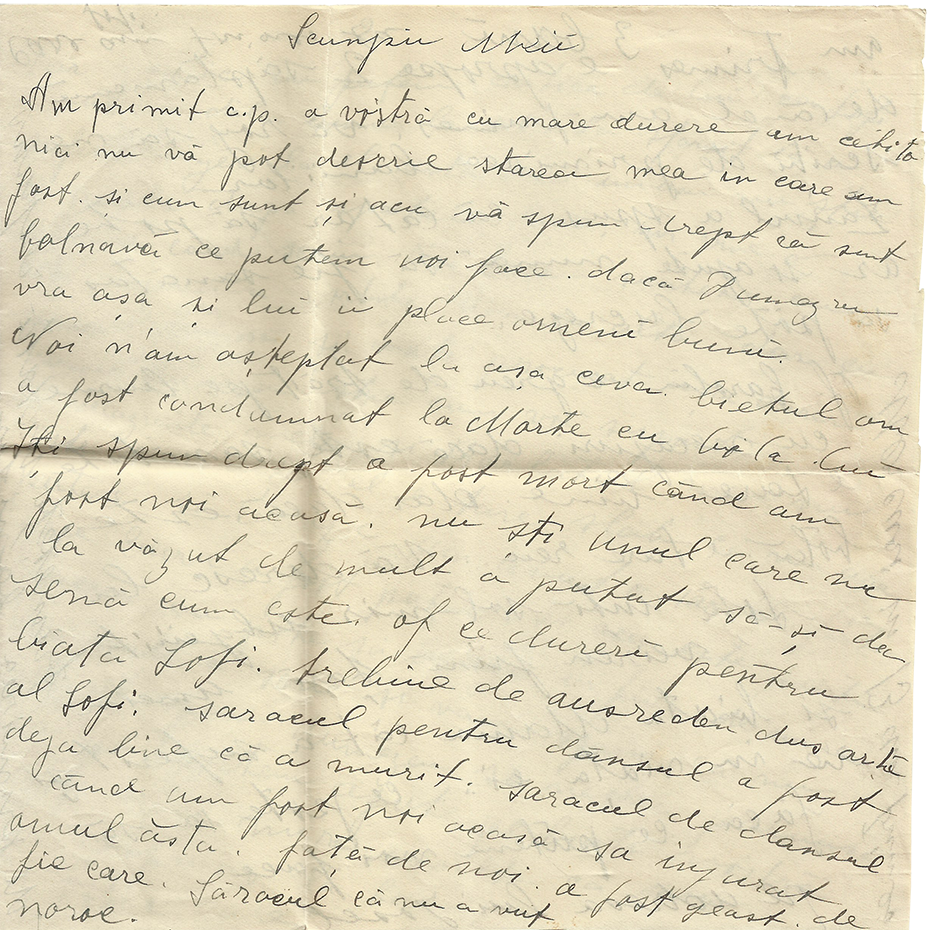 Scumpii Mei
Am primit c.p. a vóstră cu mare durere am cétito
nici nu vă pot descrie starea mea in care am
fost. si cum sunt și acu vă spun drept că sunt
bolnavă ce putem noi face. dacă Dumezeu
vra așa si lui ii place omeni buni.
Noi n'am așteptat la așa ceva. bietul om
a fost condumnat la Morte cu bóla lui
Iți spun drept a fost mort când am
fost noi acasă. nu ști unul care nu
la văzut de mult a putut să-și dea
semă cum este. of ce dureri pentru
biata Sofi. trebine de ausreden dus
al Sofi. saracul pentru dânsul a fost
deja bine că a murit. saracul de dansul
când am fost noi acasă sa injurat
omul ăsta. față de noi. a fost geast. de
fie care. Săracul că nu a vut
noroc.